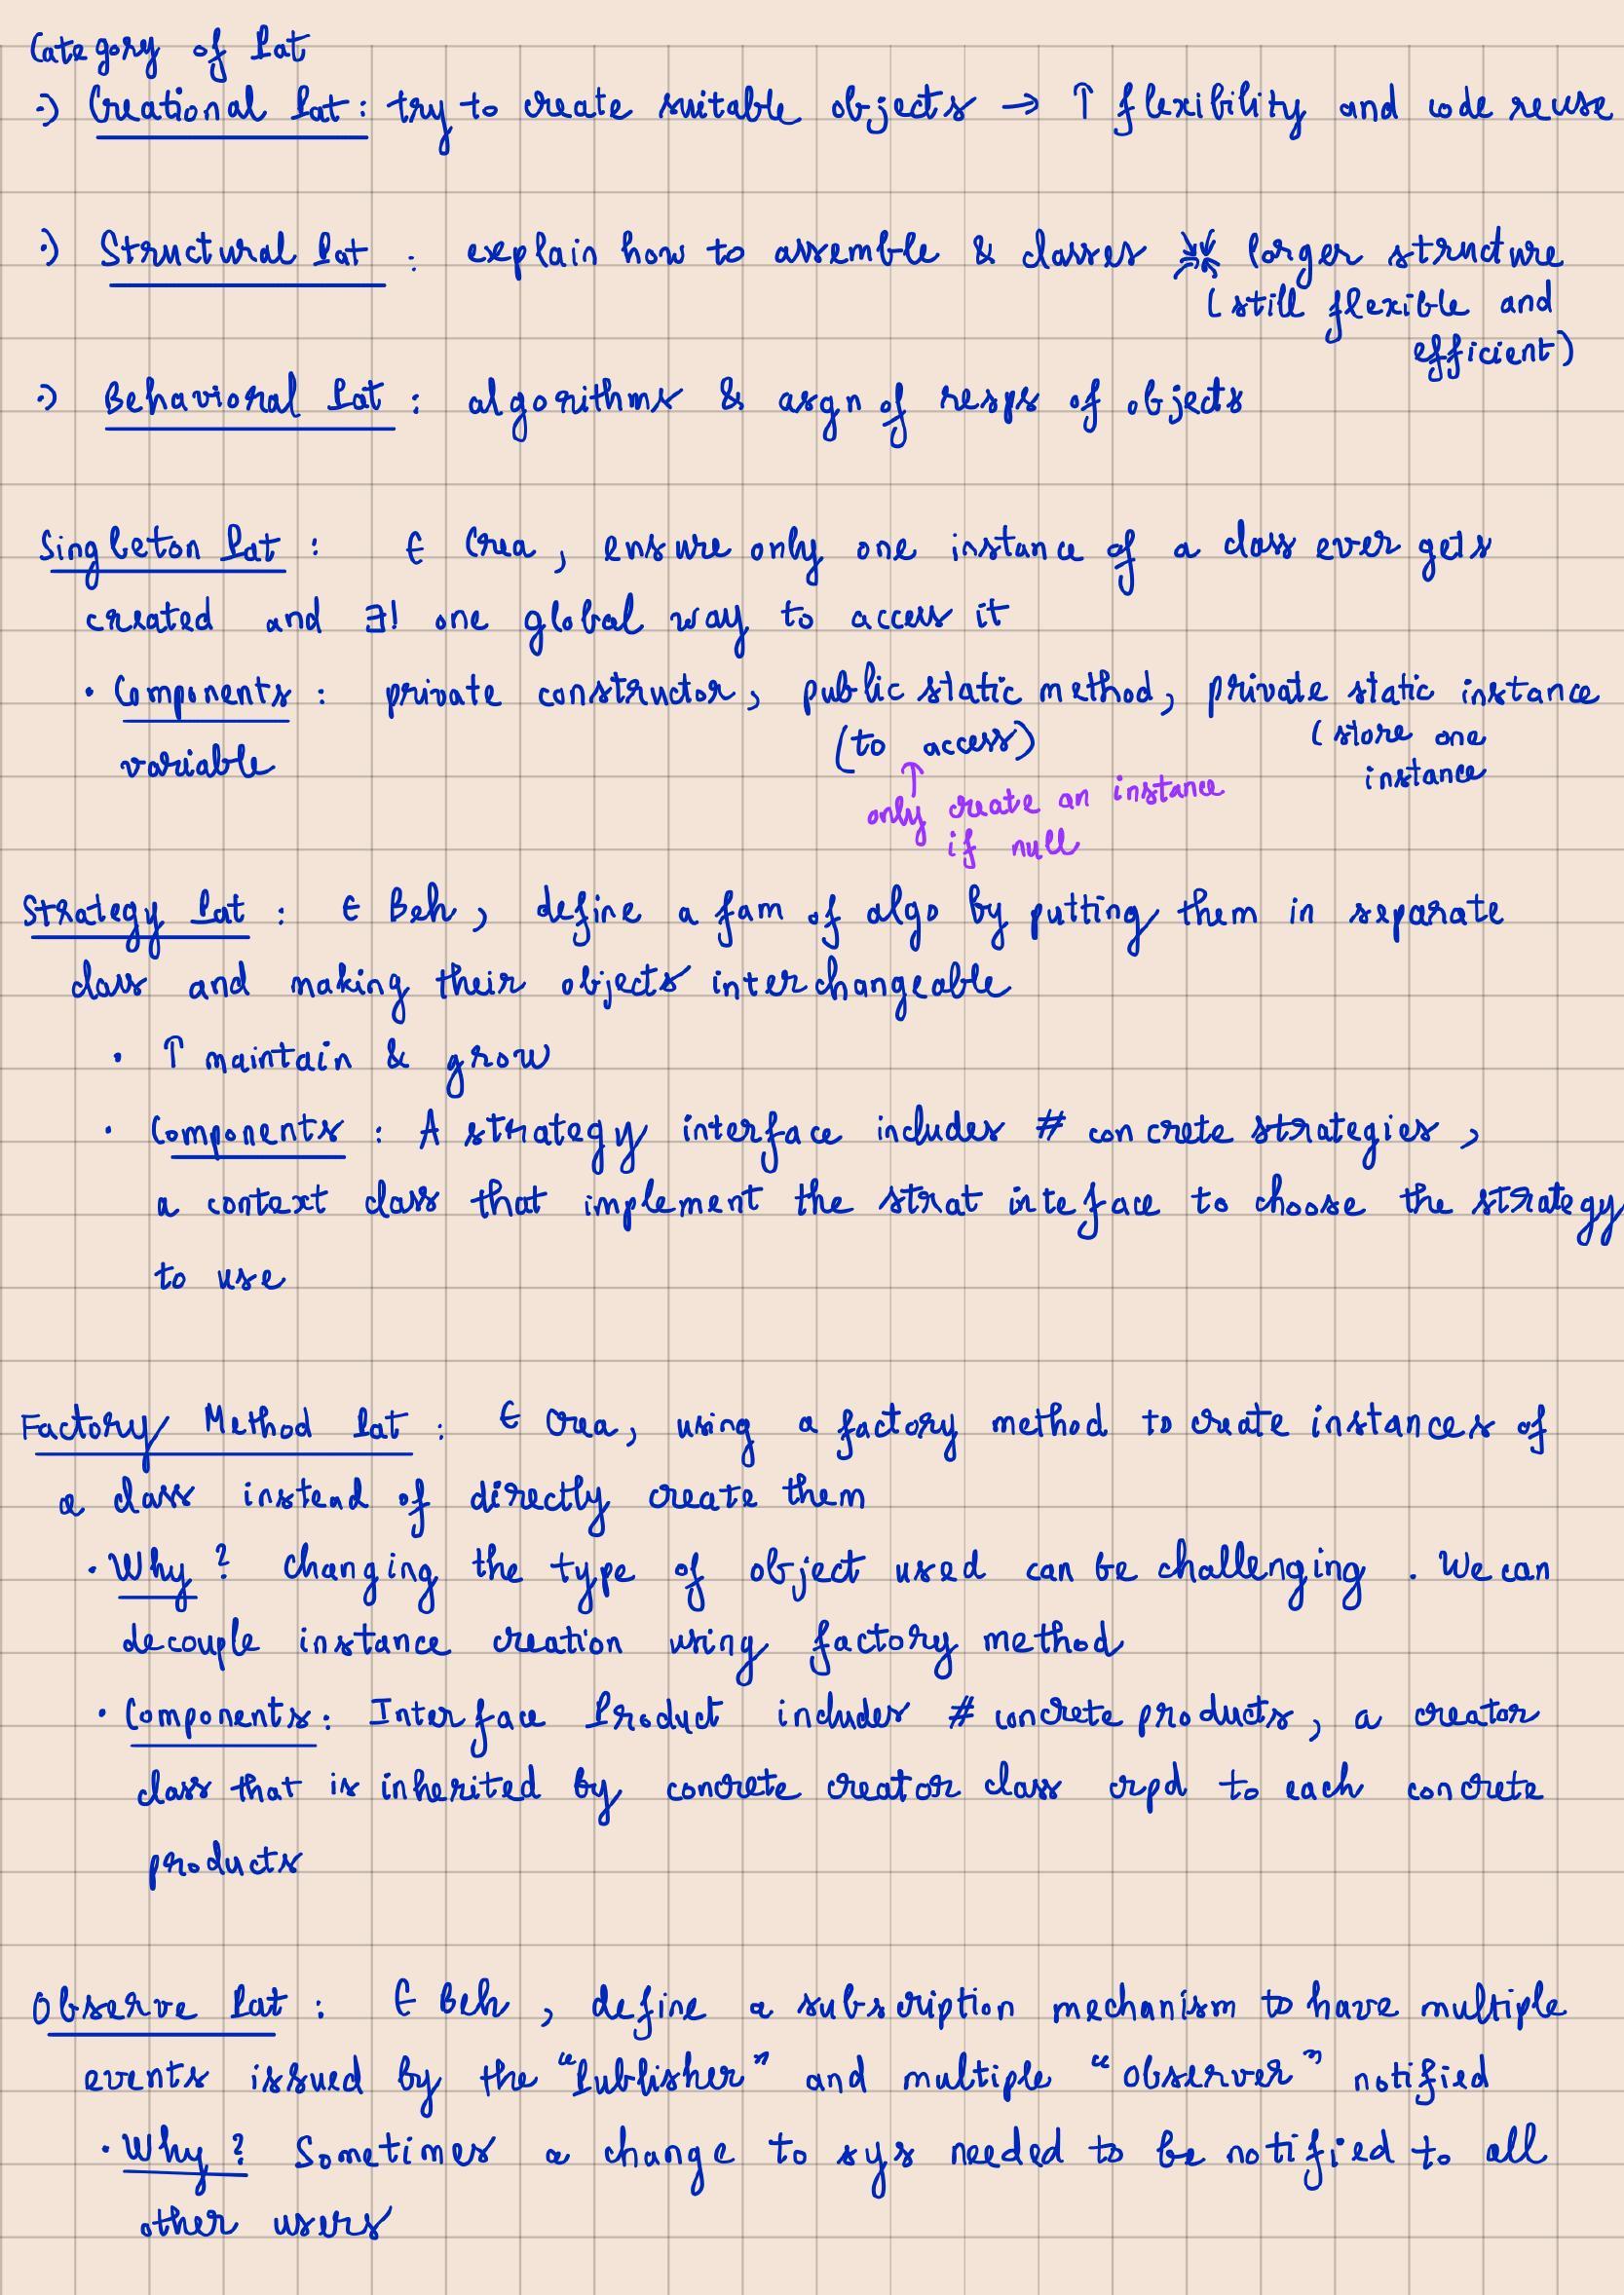 Category of Pat
→ Creational Pat: try to create suitable objects → ↑ flexibility and code reuse
→ Structural Pat : explain how to assemble & classes larger structure
(still flexible and
efficient)
→ Behavioral Pat : algorithms & asgn of resps of objects
Singleton Pat : ∈ Crea, ensure only one instance of a class ever gets
created and ∃! one global way to access it
• Components : private constructor, public static method, private static instance
(to access) (store one
variable instance
↑
only create an instance
if null
Strategy Pat : ∈ Beh, define a fam of algo by putting them in separate
class and making their objects interchangeable
• ↑ maintain & grow
• Components : A strategy interface includes # concrete strategies,
a context class that implement the strat inteface to choose the strategy
to use
Factory Method Pat : ∈ Crea, using a factory method to create instances of
a class instead of directly create them
• Why? Changing the type of object used can be challenging. We can
decouple instance creation using factory method
• Components: Interface Product includes # concrete products, a creator
class that is inherited by concrete creator class crpd to each concrete
products
Observe Pat : ∈ Beh, define a subscription mechanism to have multiple
events issued by the "Publisher" and multiple "Observer" notified
• Why? Sometimes a change to sys needed to be notified to all
other users